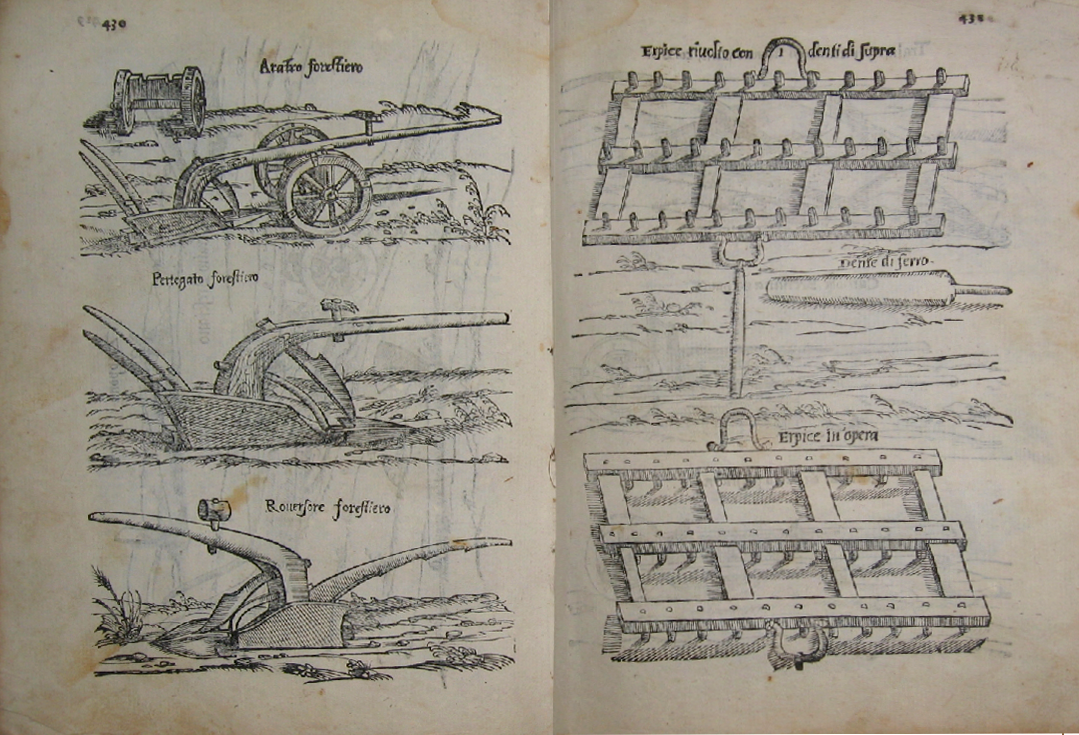 430
Aratro forestiero
Pertegato forestiero
Rouersore forestiero
43
Erpice riuolto con denti di supra
Dente di ferro.
Erpice in opera